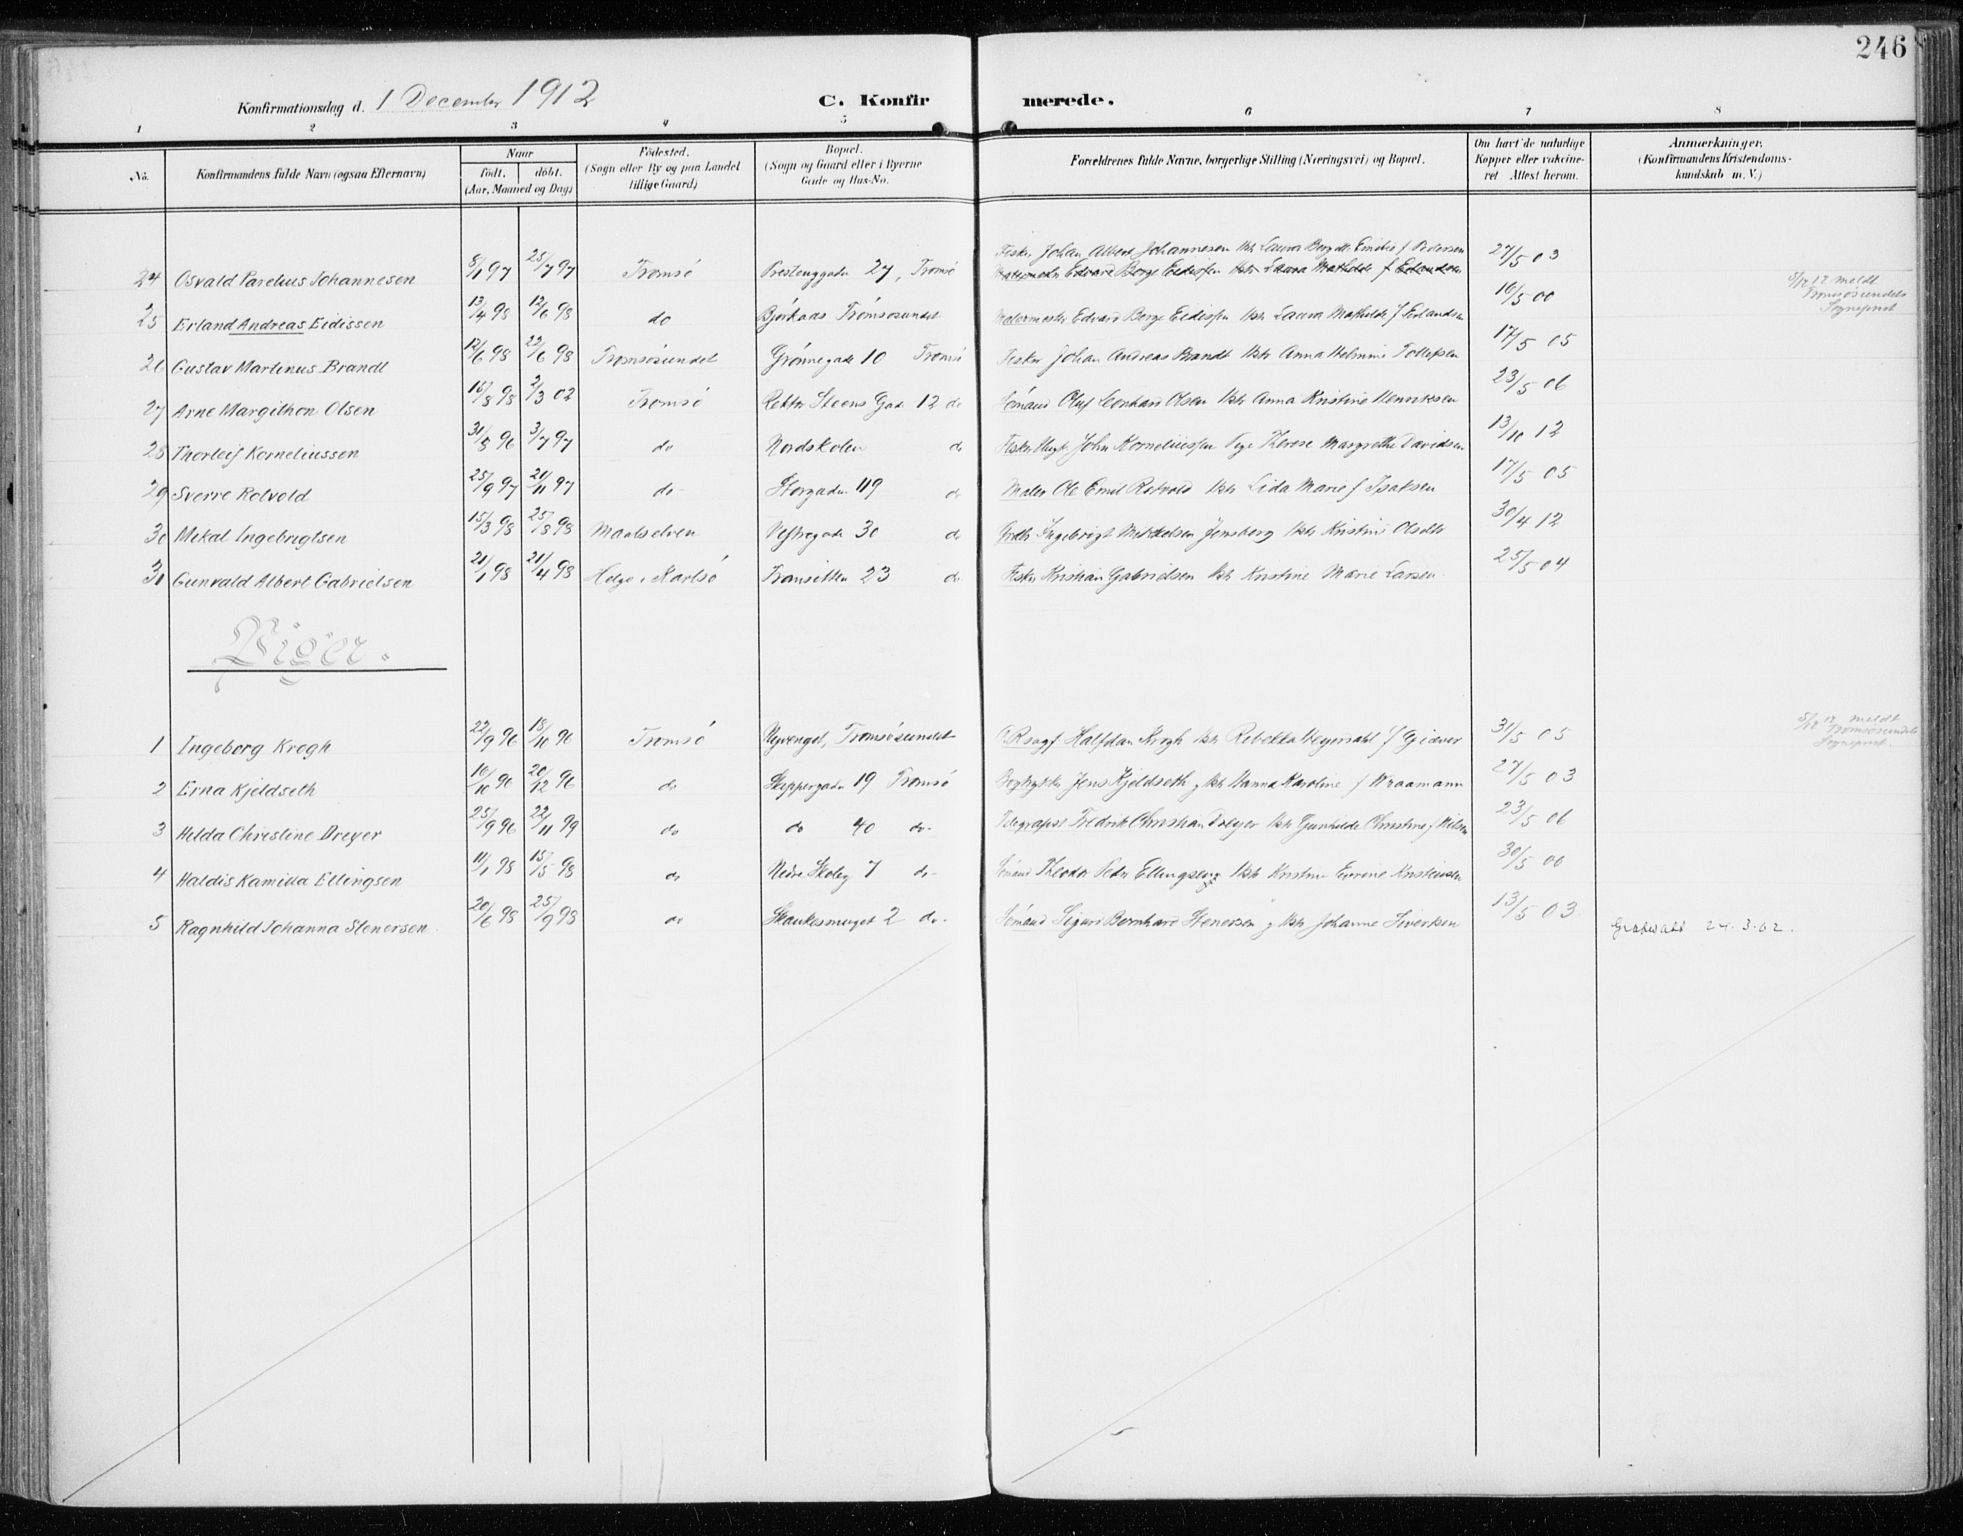 246
Konfirmationsdag d. 1 December 1912 C. Konfirmerede.
1 2 3 4 5 6 7 8
No. Konfirmandens fulde Navn (ogsaa Efternavn) Naar født. døbt. (Aar, Maaned og Dag) Fødested. (Sogn eller By og paa Landet tillige Gaard) Bopæl. (Sogn og Gaard eller i Byerne Gade og Hus-No. Forældrenes fulde Navne, borgerlige Stilling (Næringsvei) og Bopæl. Om havt de naturlige Kopper eller vaksineret Attest herom. Anmærkninger. (Konfirmandens Kristendomskundskab m. V.)
24 Osvald Parelius Johannesen 8/1 97 25/7 97 Tromsø 27, Tromsø Fisker Johan Albert Johannesen Hstr Laura Emilie f Pedersen 27/5 03
Edvard Berge Eidissen Hstr Laura Mathilde f Erlandsen
25 Erland Andreas Eidissen 13/4 98 12/6 98 do Bjørkaas Tromsøsundet Malermester Edvard Berge Eidissen Hstr Laura Mathilde f Erlandsen 16/5 00 5/12 12 meldt Tromsøsundets Sogneprest
26 Gustav Martinus Brandt 12/6 98 22/6 98 Tromsøsundet Grønnegade 10 Tromsø Fisker Johan Andreas Brandt Hstr Anna Tollefsen 17/5 05
27 Arne Margithon Olsen 15/8 98 2/3 02 Tromsø Rektor Steens Gade 12 do Sømand Oluf Leonhard Olsen Hstr Anna Kristine Henriksen 23/5 06
28 Thorleif Korneliussen 31/8 96 3/7 97 do Nordskolen do Fisker John Korneliussen Pige Therese Margrethe Davidsen 13/10 12
29 Sverre Rotvold 25/9 97 21/11 97 do Storgaden 119 do Maler Ole Emil Rotvold Hstr Lida Marie f Isaksen 17/5 05
30 Mikal Ingebrigtsen 15/3 98 25/8 98 Maalselven Vestregade 30 do Ingebrigt Mikkelsen Jensberg Hstr Kristine Olsdtr 30/4 12
31 Gunvald Albert Gabrielsen 21/1 98 21/4 98 Helgø i Karlsø 23 do Fisker Kristian Gabrielsen Hstr Kristine Marie Larsen 25/5 04
Piger.
1 Ingeborg Krogh 22/9 96 18/10 96 Tromsø Nyvenget, Tromsøsundet O.R.sagf Halfdan Krogh Hstr Rebekka f Gjæver 31/5 05 5/12 12 meldt Tromsøsundets Sogneprest.
2 Erna Kjeldseth 16/10 96 20/12 96 do Skippergaden 19 Tromsø Bogtrykker Jens Kjeldseth og Hstr Hanna Karoline f Wraamann 27/5 03
3 Helda Christine Dreyer 25/9 96 22/11 99 do do 40 do Telegrafist Fredrik Christian Dreyer Hstr Gunhilde Christine f Nilsen 23/5 06
4 Haldis Kamilla Ellingsen 11/1 98 15/5 98 do Nedre Skoleg 7 do Sømand Theodor Peder Ellingsen Hstr Kristine Kristensen 30/5 00
5 Ragnhild Johanna Stenersen 20/6 98 25/9 98 do Skankesmuget 2 do Sømand Sigurd Bernhard Stenersen og Hstr Johanne Sivertsen 13/5 03 24.3.02.